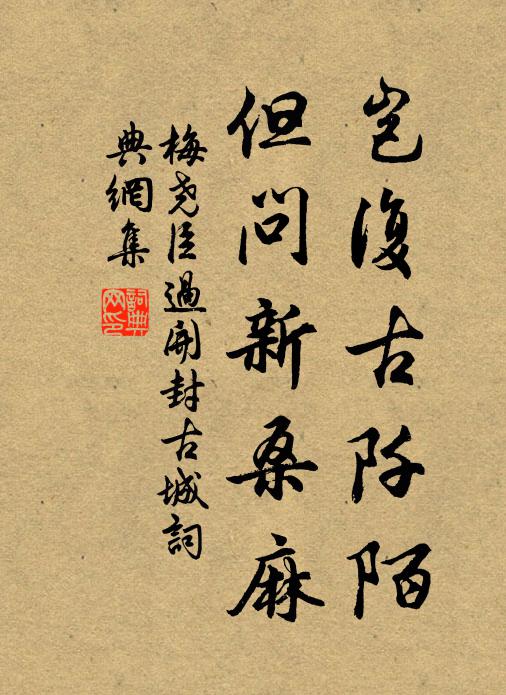 岂復古阡陌
但问新桑麻
梅尧臣過開封古城詞
典網集
詞典网印